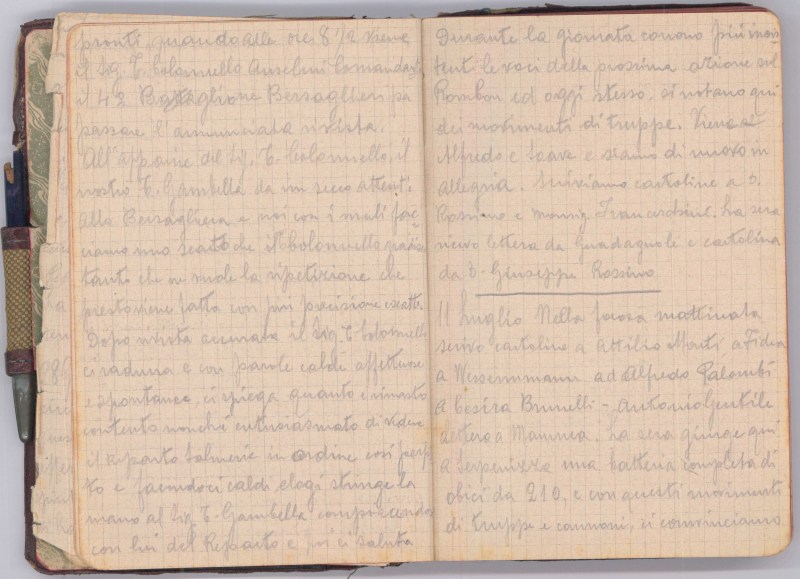 pronti, quando alle ore 8 1/2 viene
il Sig. T. Colonnello Anselmi Comandante
il 42 Battaglione Bersaglieri pa
passare l'annunciata rivista.
All'apparire del Sig. T. Colonnello, il
nostro T. Gambella da un secco attenti
alla Bersagliera e noi con i muli fac-
ciamo uno scatto che il Colonnello
tanto che ne vuole la ripetizione che
presto viene fatta con più precisione esatta.
Dopo rivista accurata il Sig. T. Colonnello
ci raduna e con parole calde affettuose
e spontanee, ci spiega quanto è rimasto
contento nonche entusiasmato di vedere
il reparto Salmerie in ordine così perfet
to e facendoci caldi elogi stringe la
mano al Sig. T. Gambella
con lui del Reparto e poi ci saluta
Durante la giornata corrono più insis
tenti le voci della prossima azione sul
Rombon ed oggi stesso, si notano qui
dei movimenti di truppe. Viene
Alfredo e Soave e siamo di nuovo in
allegria. Scriviamo cartoline a
Rossino e Franceschini. La sera
ricevo lettera da Guadagnoli e cartolina
da T. Giuseppe Rossino
11 Luglio Nella mattinata
scrivo cartoline a Attilio Monti, a
a Wessermmann ad Alfredo Palombi
a Cesira Brunelli - Antonio Gentile
lettera a Mamma. La sera giunge qui
a Serpenizza una batteria completa di
obici da 210, e con questi movimenti
di truppe e cannoni, ci convinciamo